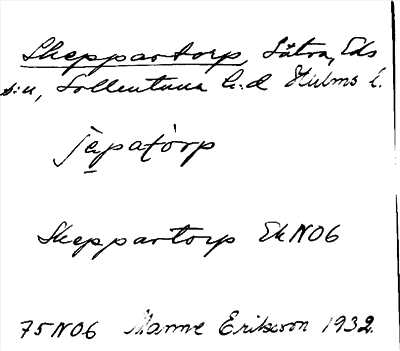 Skeppartorp, Sätra, Eds
s:n, Sollentuna h:d Sthlms l.
Skeppartorp Ek N06
75N06 Manne Eriksson 1932.